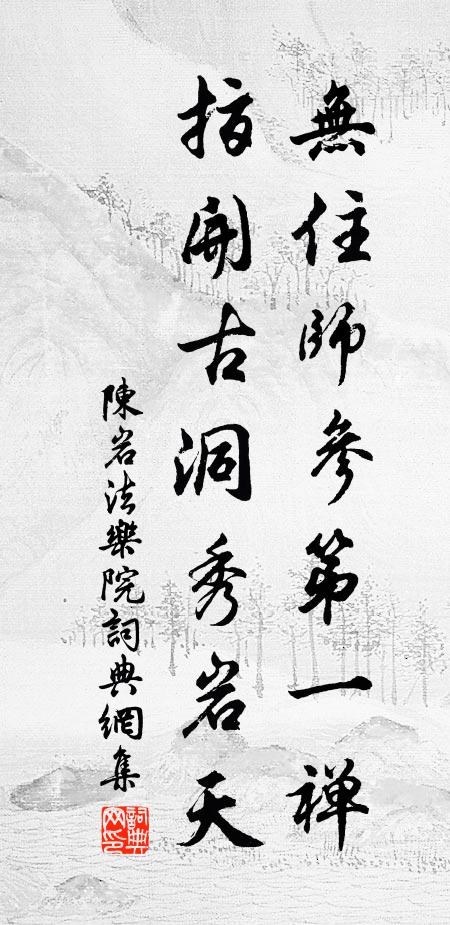 無住師參第一禅
指開古洞秀岩天
陳岩法樂院詞典網集
詞典网印